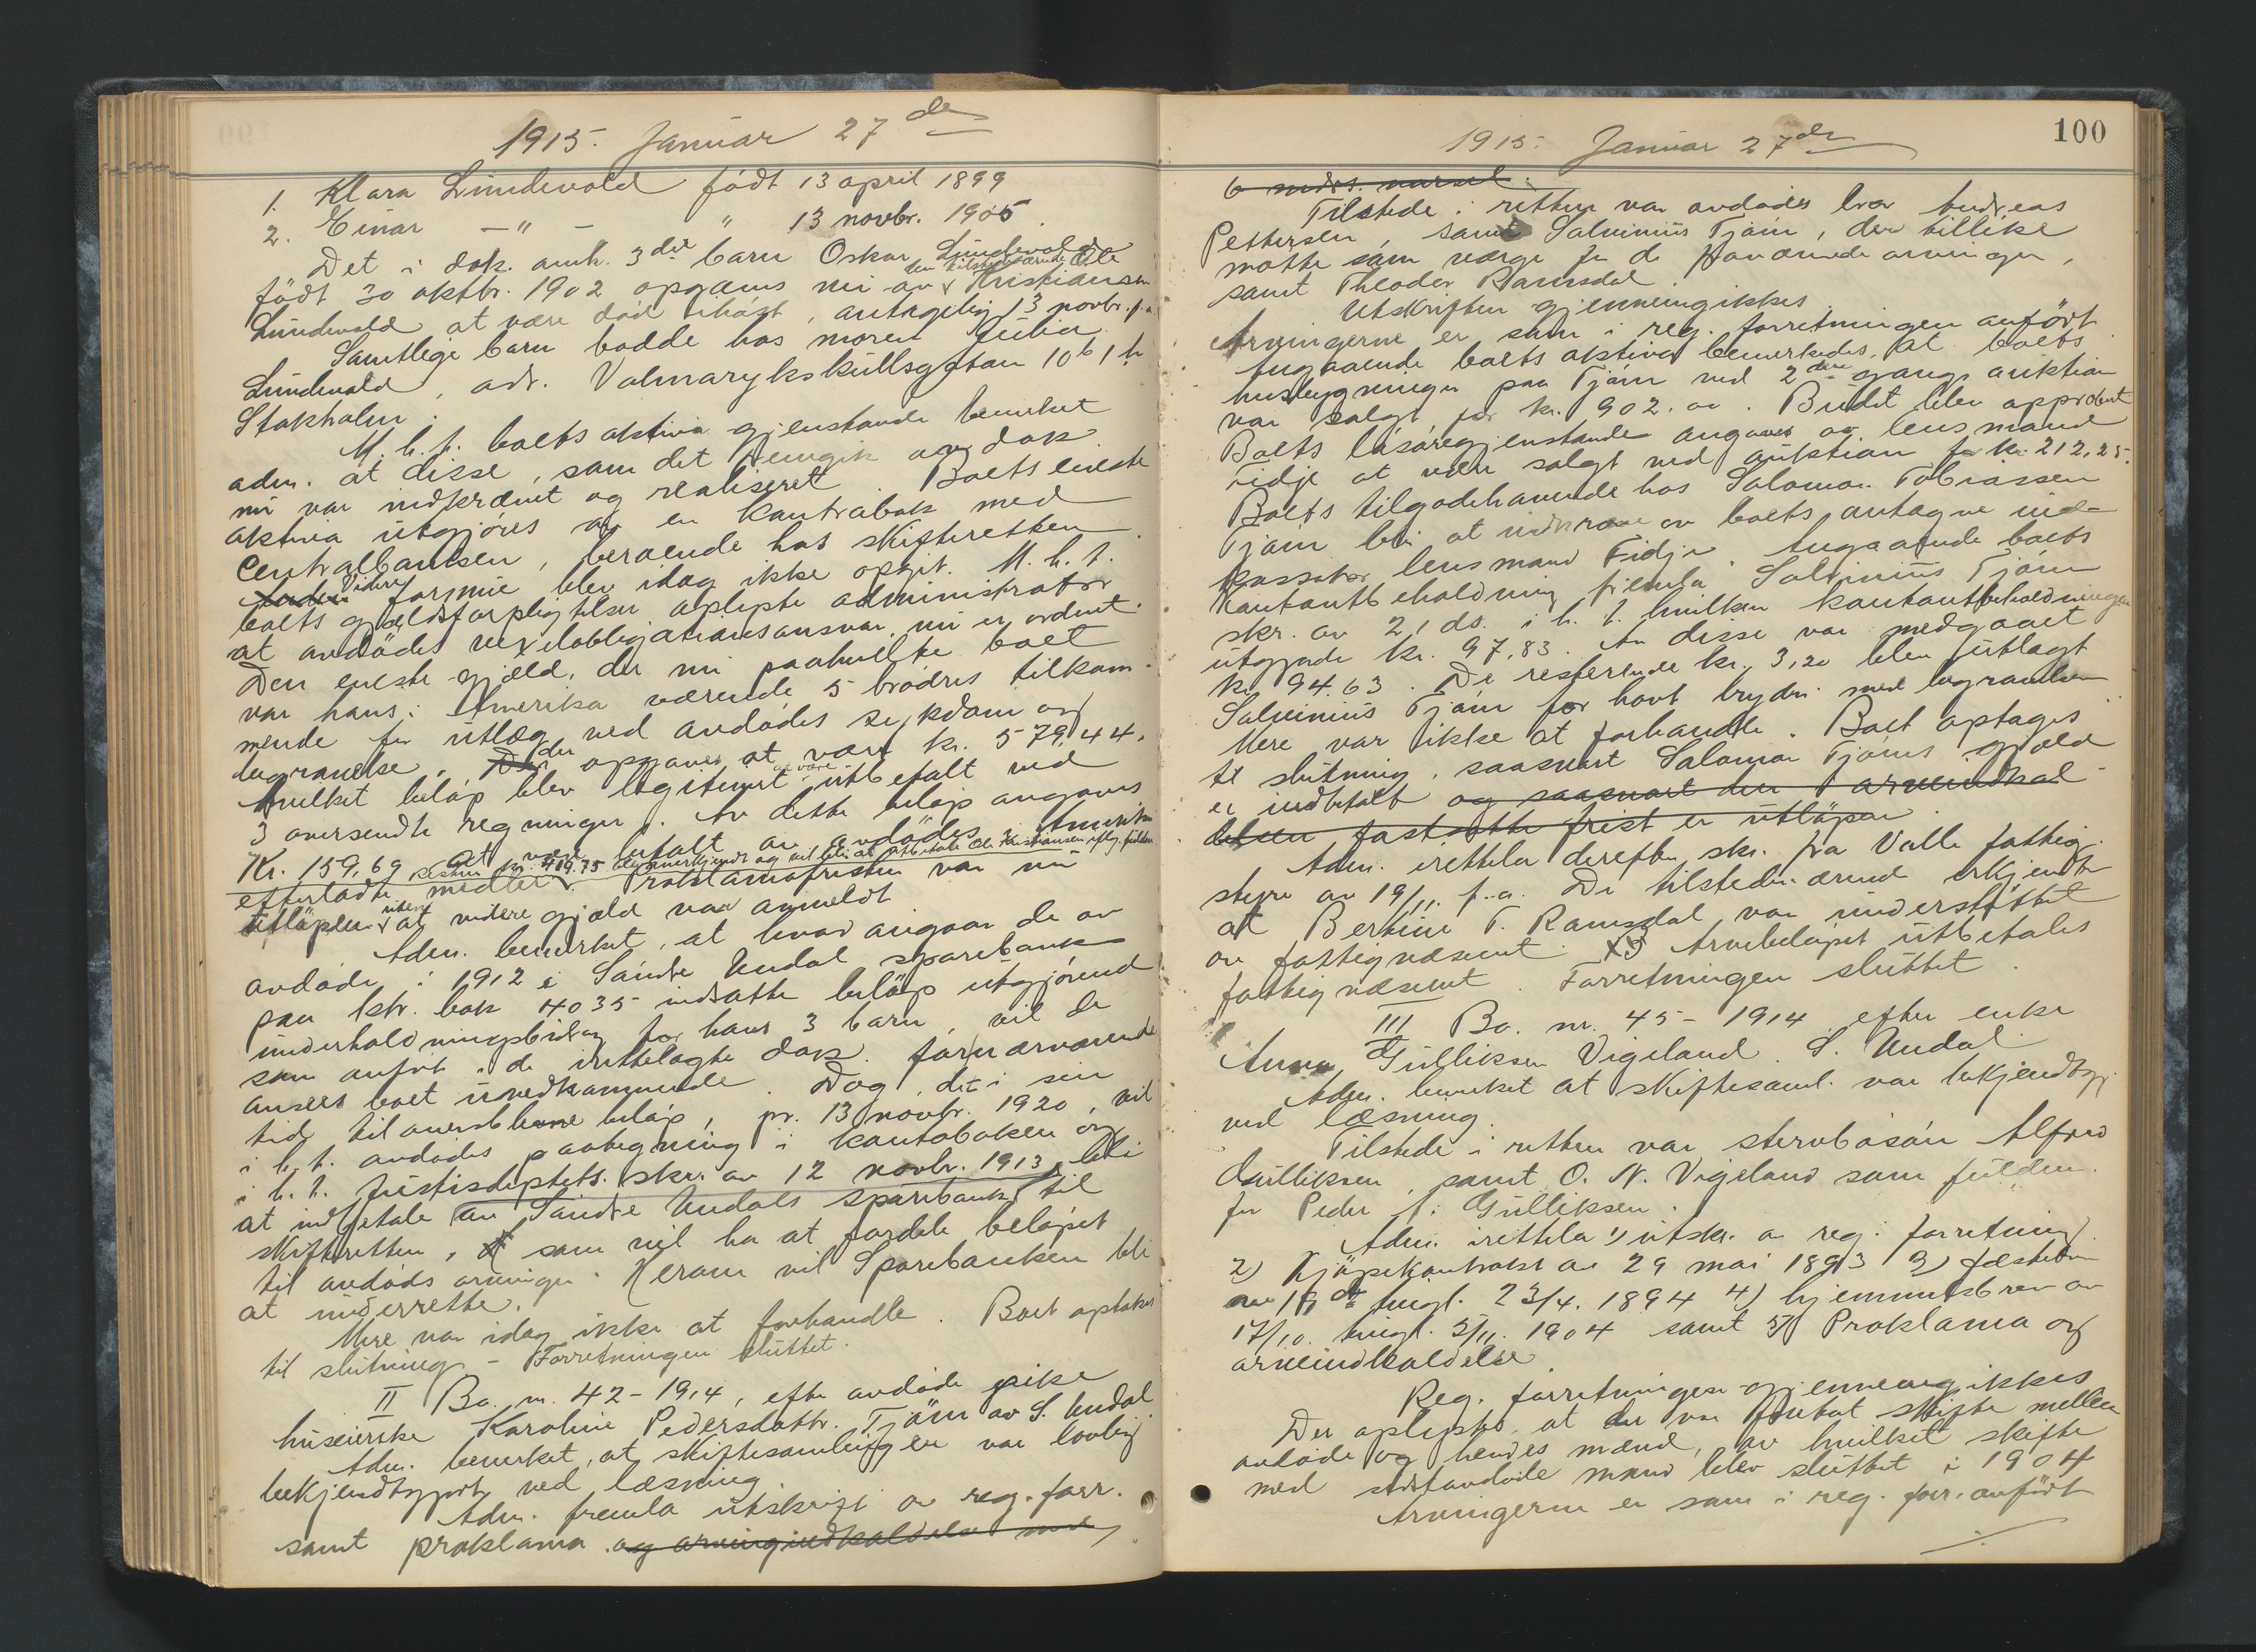 1915. Januar 27de
1. Klara Lundevold født 13 april 1899
2. Einar —"— " 13 novbr. 1905.
Det i dok. anh. 3de barn Oskar Lundevold
født 30 oktbr. 1902 opgaves nu av den tilstedeværende Ole Kristiansen
Lundevold at være død, antagelig 13 novbr. f.a.
Samtlige barn bodde hos moren
Lundevold, adr. Valmarykskullsgatan 10 b 1 h
Stokholm.
M.h.t. boets aktiva gjenstande bemerket
adm. at disse, som det fremgik av dok.
nu var indkrævet og realiseret. Boets eneste
aktiva utgjøres av en kontrabok med
Centralbanken, beroende hos skifteretten.
Videre formue blev idag ikke opgit. M.h.t.
boets gjældsforpligtelser oplyste administrator
at avdødes vexelobligationsansvar nu er ordnet.
Den eneste gjæld, der nu paahvilte boet
var hans i Amerika værende 5 brødres tilkom-
mende for utlæg ved avdødes sykdom og
begravelse, der opgaves at være kr. 579,44.
Hvilket beløp blev legitimert at være utbetalt ved
3 oversendte regninger. Av dette beløp angaves
Kr. 159,69 at være betalt av avdødes i Amerika
Resten kr. 419.75 blev anerkjendt og vil bli at utbetale Ole Kristiansen iflg. fuldm.
efterladte midler. Proklamafristen var nu
utløpen uten at videre gjæld var anmeldt
Adm. bemerket, at hvad angaar de av
avdøde i 1912 i Søndre Undal sparebank
paa ktr. bok 4035 indsatte beløp utgjørende
underholdningsbidrag for hans 3 barn, vil de
som anført i de irettelagte dok. for nærværende
ansees boet uvedkommende. Dog, det i sin
tid tiloversblevne beløp, pr. 13 novbr. 1920, vil
i h.t. avdødes paategning i kontraboken og
i h.t. Justisdeptets. skr. av 12 novbr. 1913, bli
at indbetale av Søndre Undals sparebank til
skifteretten, som vil ha at fordele beløpet
til avdøds arvinger. Herom vil Sparebanken bli
at underrette.
Mere var idag ikke at forhandle. Boet optakes
til slutning – Forretningen sluttet.
II Bo. nr. 42 – 1914, efter avdøde pike
huseierske Karoline Pedersdattr. Tjøm av S. Undal
Adm. bemerket, at skiftesamlingen var lovlig
bekjendtgjort ved læsning.
Adm. fremla utskrift av reg. forr.
samt proklama og arvingindkaldelse med
1915. Januar 27de
100
6 mdrs. varsel.
Tilstede i retten var avdødes bror Andreas
Pettersen, samt Salvinius Tjøm, der tillike
møtte som verge for de fraværende arvinger,
samt Theodor Ramsdal.
Utskriften gjennemgikkes.
Arvingerne er som i reg. forretningen anført
Angaaende boets aktiva bemerkedes, at boets
husbygninger paa Tjøm ved 2den gangs auktion
var solgt for kr. 902.00. Budet blev approbert
Boets løsøregjenstande angaves av lensmand
Fidje at være solgt ved auktion for kr. 212,25.
Boets tilgodehavende hos Salomon Tobiassen
Tjøm blir at inddrive av boets antagne ind-
kassator lensmand Fidje. Angaaende boets
kontantbeholdning fremla Salvinius Tjøm
skr. av 21 ds. i h.t. hvilken kontantbeholdningen
utgjorde kr. 97,83. Av disse var medgaaet
kr. 94.63. De resterende kr. 3,20 blev utlagt
Salvinius Tjøm for havt bryderi med begravelsen
Mere var ikke at forhandle. Boet optages
til slutning, saasnart Salomon Tjøms gjæld
er indbetalt og saasnart den i arveindkal-
delsen fastsatte frist er utløpen.
Adm. irettela derefter skr. fra Valle fattig-
styre av 19/11 f.a. De tilstedeværende erkjendte
at Berthine T. Ramsdal var understøttet
av fattigvæsenet. Arvebeløpet utbetales
fattigvæsenet. Forretningen sluttet.
III Bo. nr. 45 – 1914 efter enke
Anna Gulliksen Vigeland. S. Undal.
Adm. bemerket at skiftesaml. var bekjendtgj.
ved læsning.
Tilstede i retten var stervbosøn Alfred
Gulliksen, samt O. N. Vigeland som fuldm.
for Peder A. Gulliksen.
Adm. irettela 1) utskr. av reg. forretning
2) Kjøpekontrakt av 29 mai 1893 3)
tingl. 23/4. 1894 4) hjemmelsbrev av
17/10. tingl. 5/11. 1904 samt 5) Proklama og
arveindkaldelse.
Reg. forretningen gjennemgikkes
Der oplystes, at der var foretat skifte mellem
avdøde og hendes mand, av hvilket skifte
med sidstavdøde mand blev sluttet i 1904
Arvingerne er som i reg. forr. anført